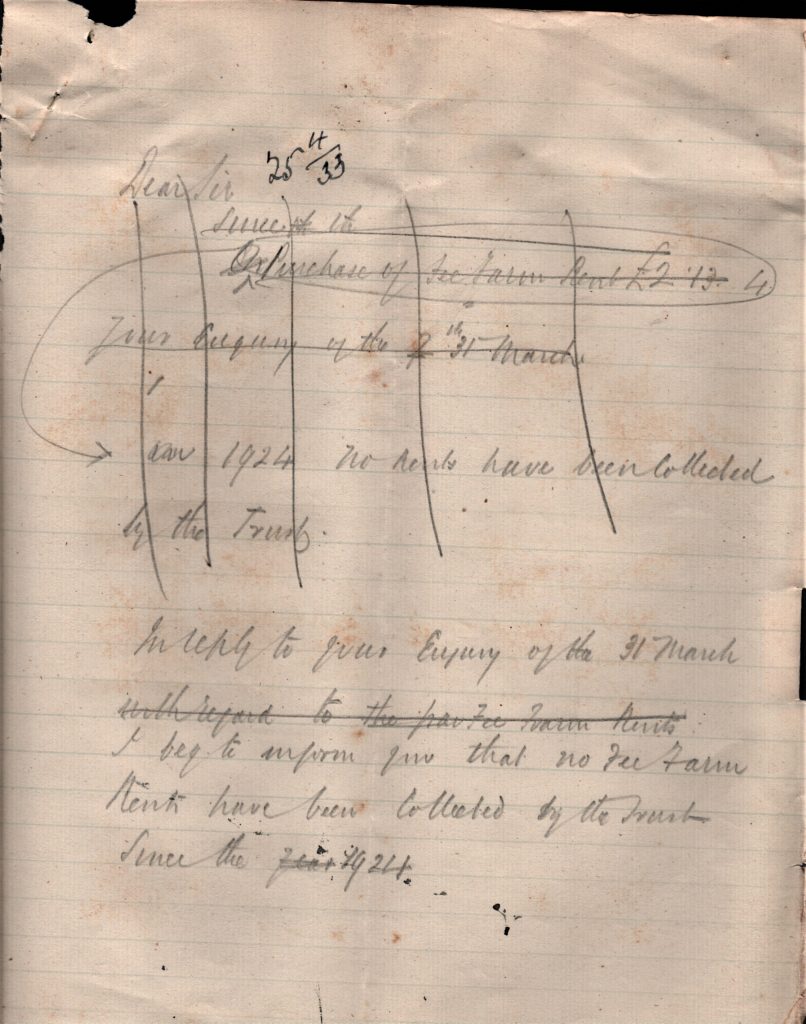 25 4/33
Dear Sir
Since th th
Purchase of Fee Farm Rent £2.13.4
Your Enquiry of the 7th 31 March
1924 No Rents have been Collected
by the Trust.
In reply to your Enquiry of the 31 March
with regard to the Fee Farm Rents
I beg to inform you that no Fee Farm
Rents have been Collected by the Trust
Since the year 1924